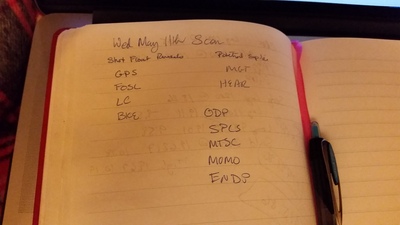 Wed May 11th Scan
Short Float Potential Squ
GPS MGT
FOSL HEAR
LC
BKE ODP
SPLS
MTSC
MOMO
ENDP